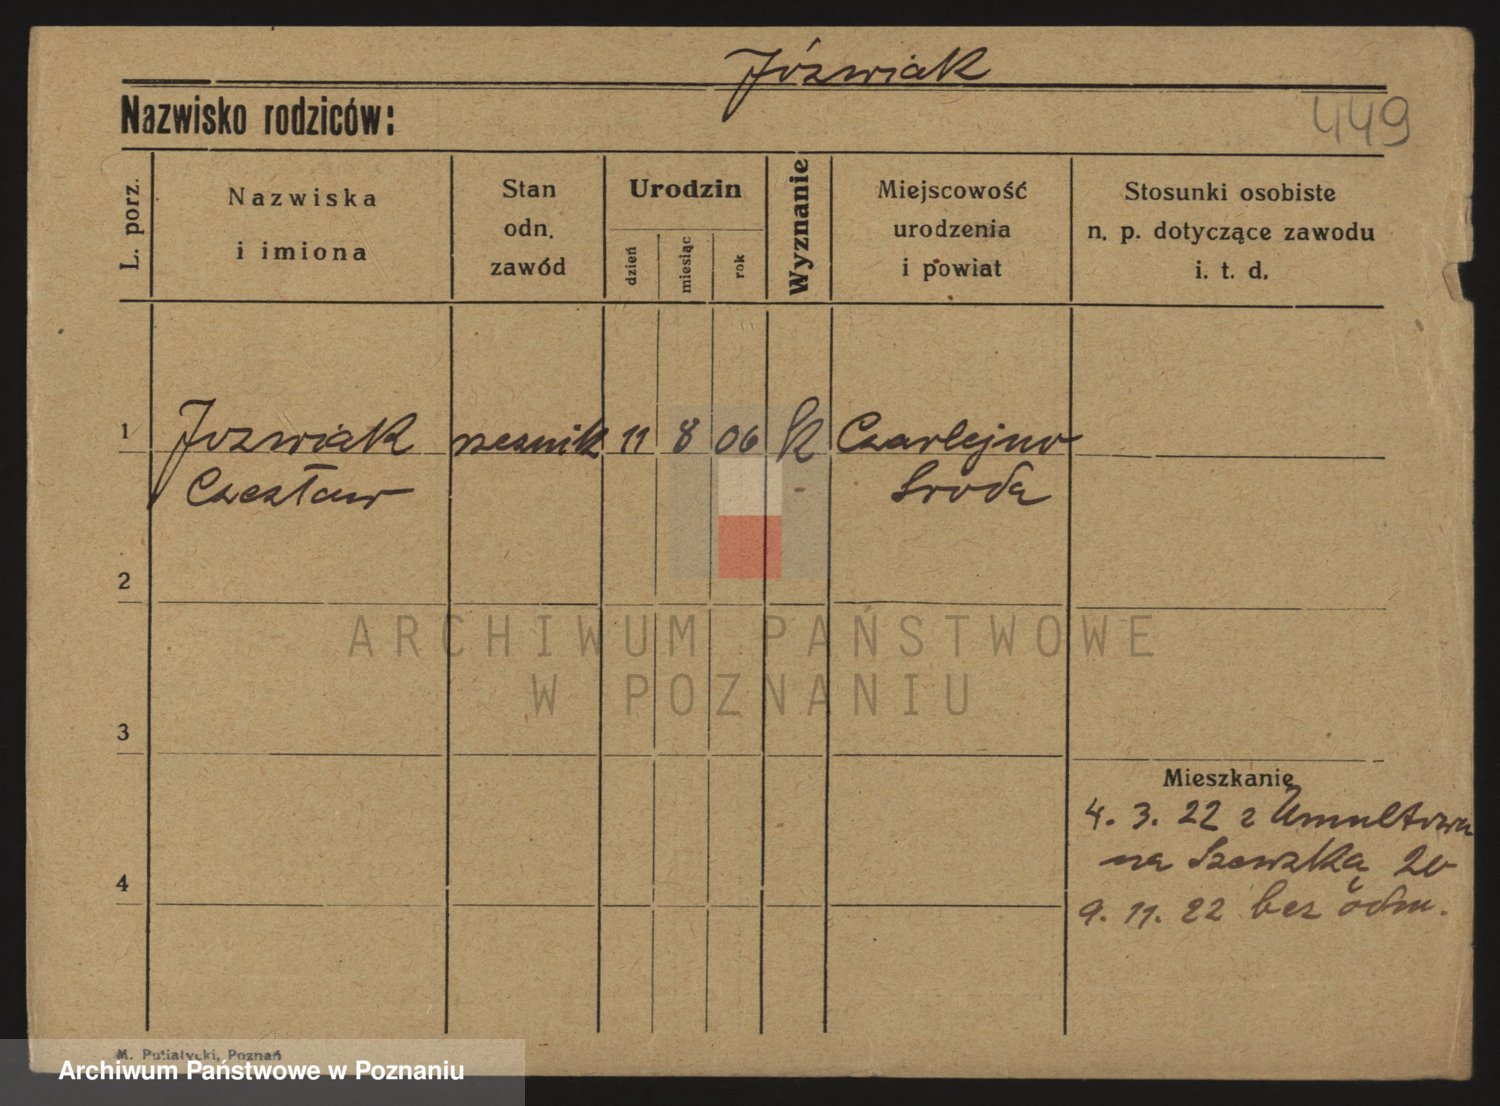 Józwiak
Nazwisko rodziców:
449
L. porz.
Nazwiska
i imiona
Stan
odn.
zawód
Urodzin
dzień
miesiąc
rok
Wyznanie
Miejscowość
urodzenia
i powiat
Stosunki osobiste
n. p. dotyczące zawodu
i. t. d.
1 Jozwiak 11 8 06 k Czarlejnow
Czesław Sroda
2
ARCHIWUM PAŃSTWOWE
W POZNANIU
3
Mieszkanie
4. 3. 22 z Umultowa
na Szewską 20
4
9. 11. 22 bez odm.
M. Putiatycki, Poznań
Archiwum Państwowe w Poznaniu